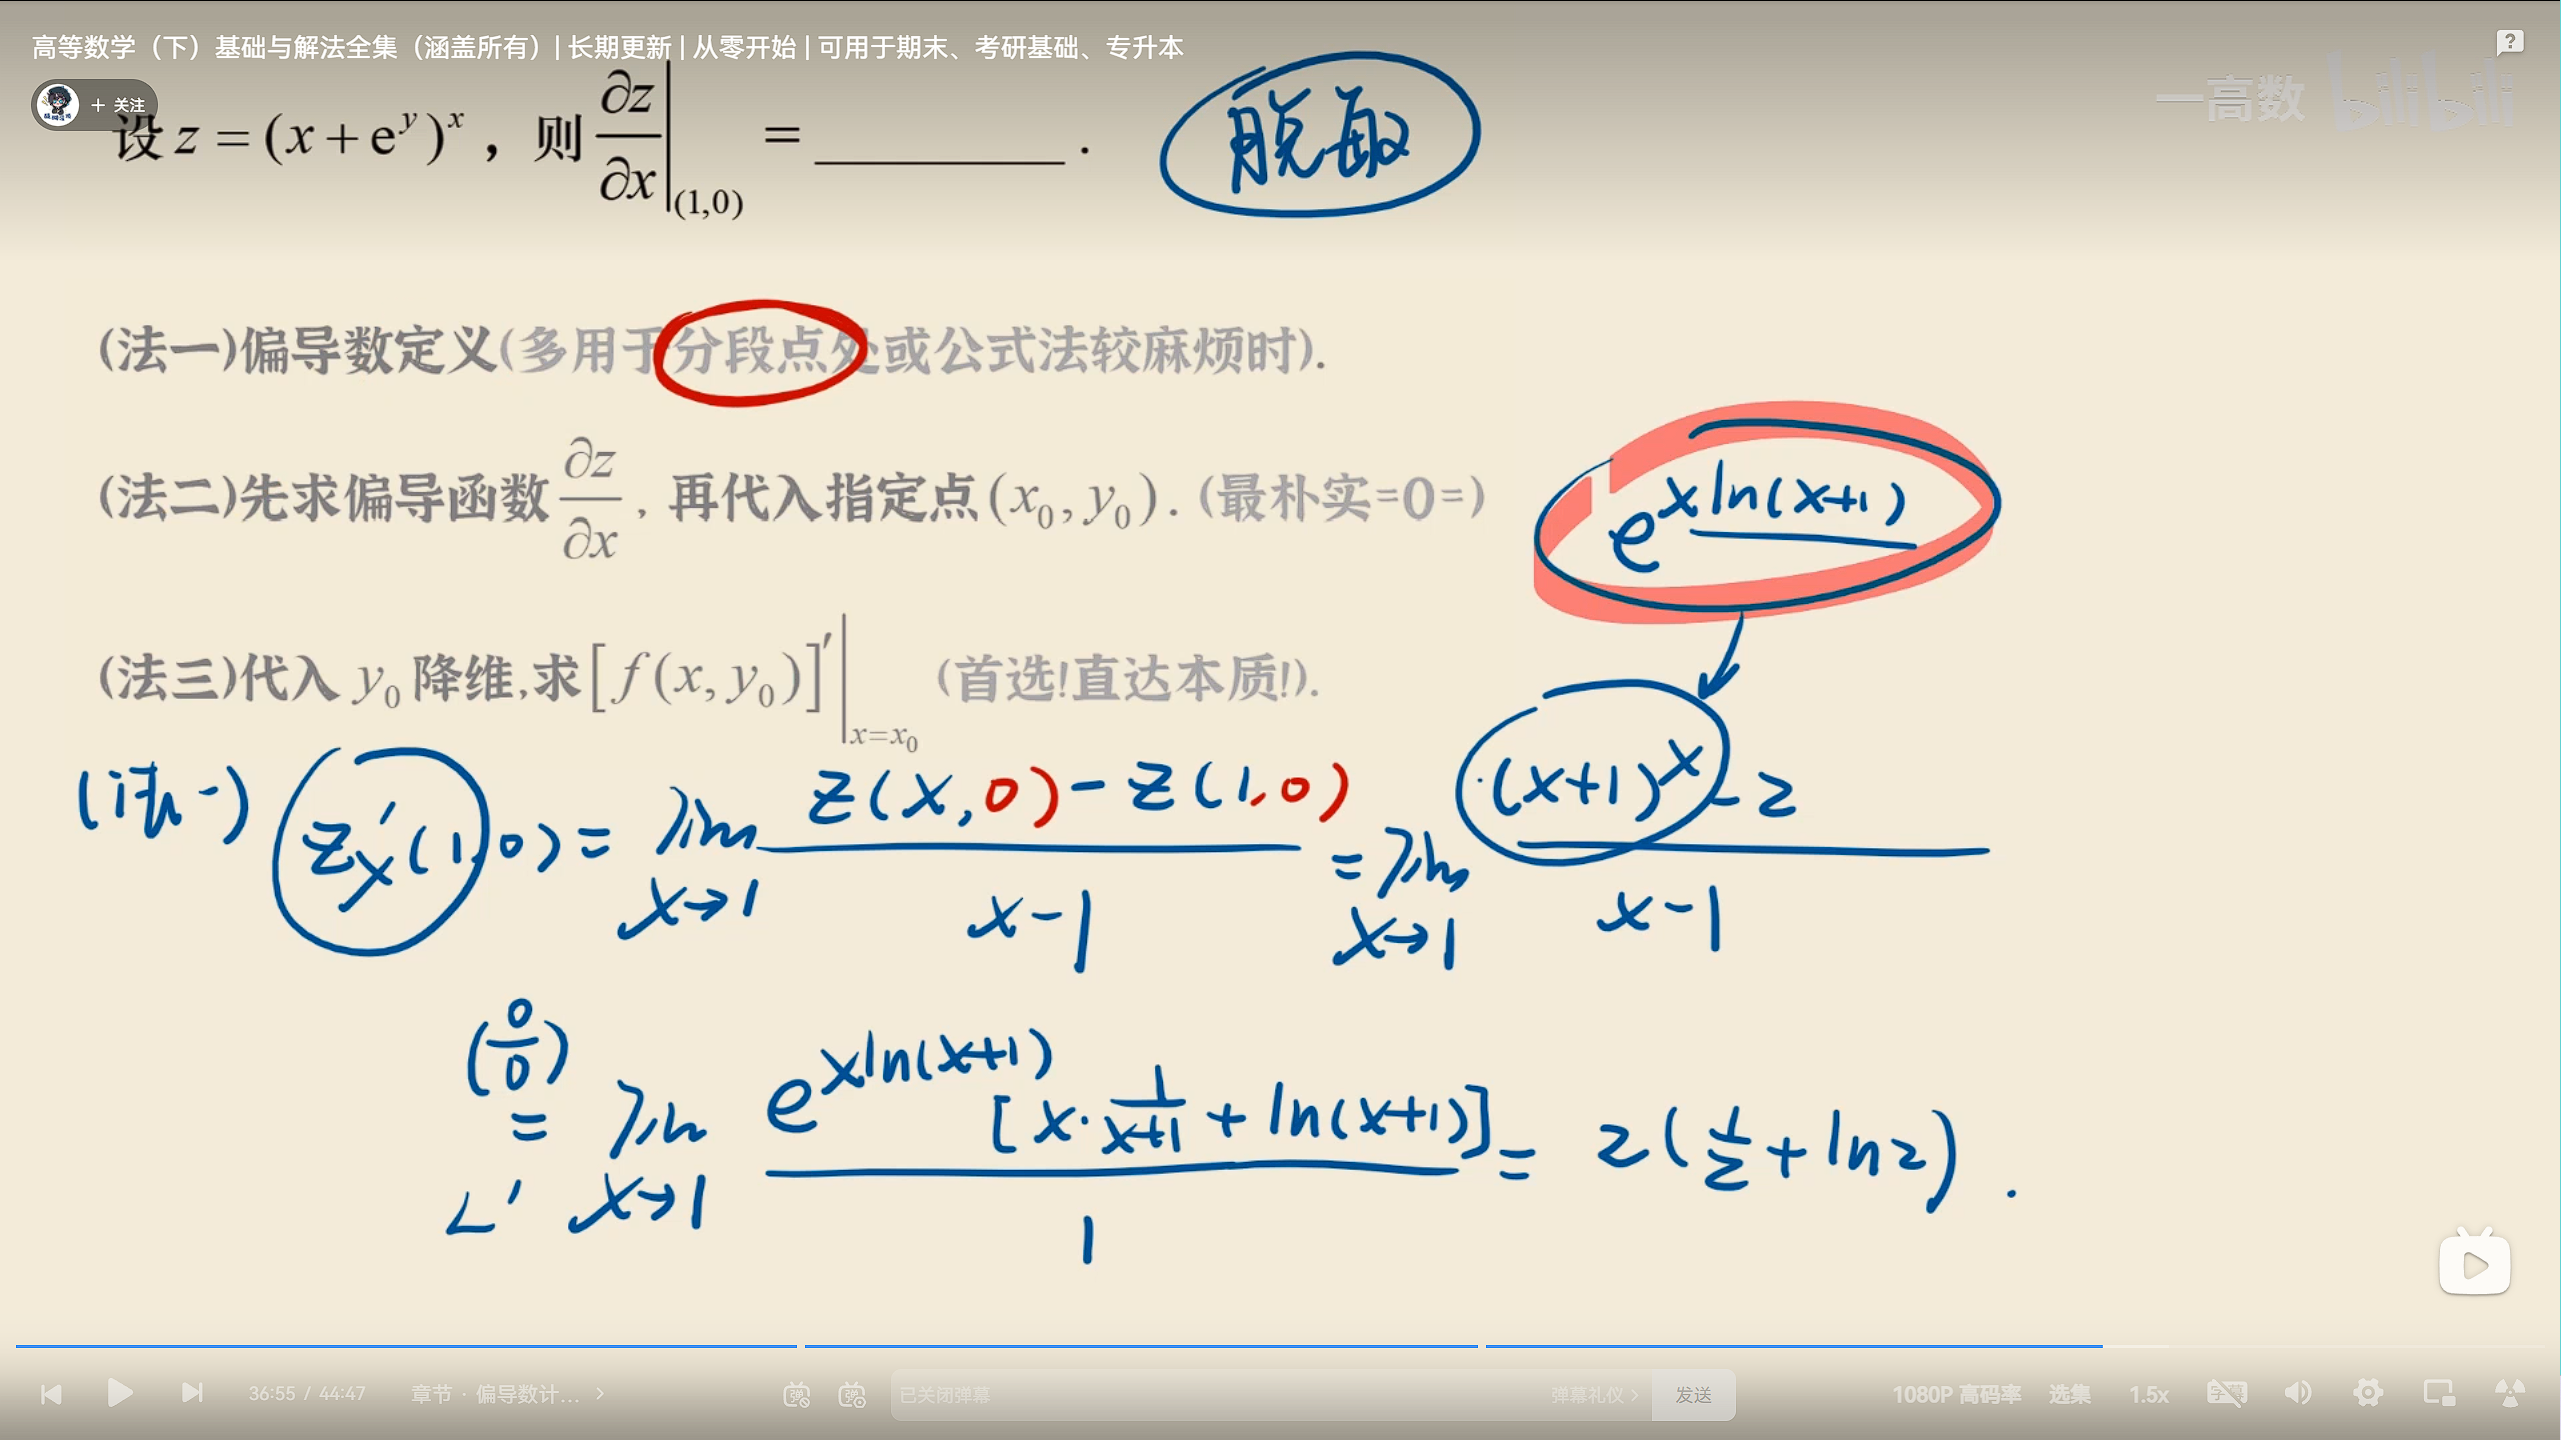 高等数学（下）基础与解法全集（涵盖所有）| 长期更新 | 从零开始 | 可用于期末、考研基础、专升本
＋ 关注
一高数 bilibili
设 z = (x + e^y)^x ，则 ∂z/∂x |_(1,0) = ________ .
脱敏
(法一)偏导数定义(多用于分段点处或公式法较麻烦时).
(法二)先求偏导函数 ∂z/∂x , 再代入指定点(x₀, y₀). (最朴实=0=)
e^{xln(x+1)}
(法三)代入 y₀ 降维,求[f(x, y₀)]'|_{x=x₀} (首选!直达本质!).
(法一) z'_x(1,0) = lim_{x→1} (z(x,0) - z(1,0))/(x-1) = lim_{x→1} ((x+1)^x - 2)/(x-1)
(0/0) = L' lim_{x→1} e^{xln(x+1)}[x·1/(x+1) + ln(x+1)]/1 = 2(1/2 + ln2) .
36:55 / 44:47 章节 · 偏导数计... > 已关闭弹幕 弹幕礼仪 > 发送 1080P 高码率 选集 1.5x 字幕